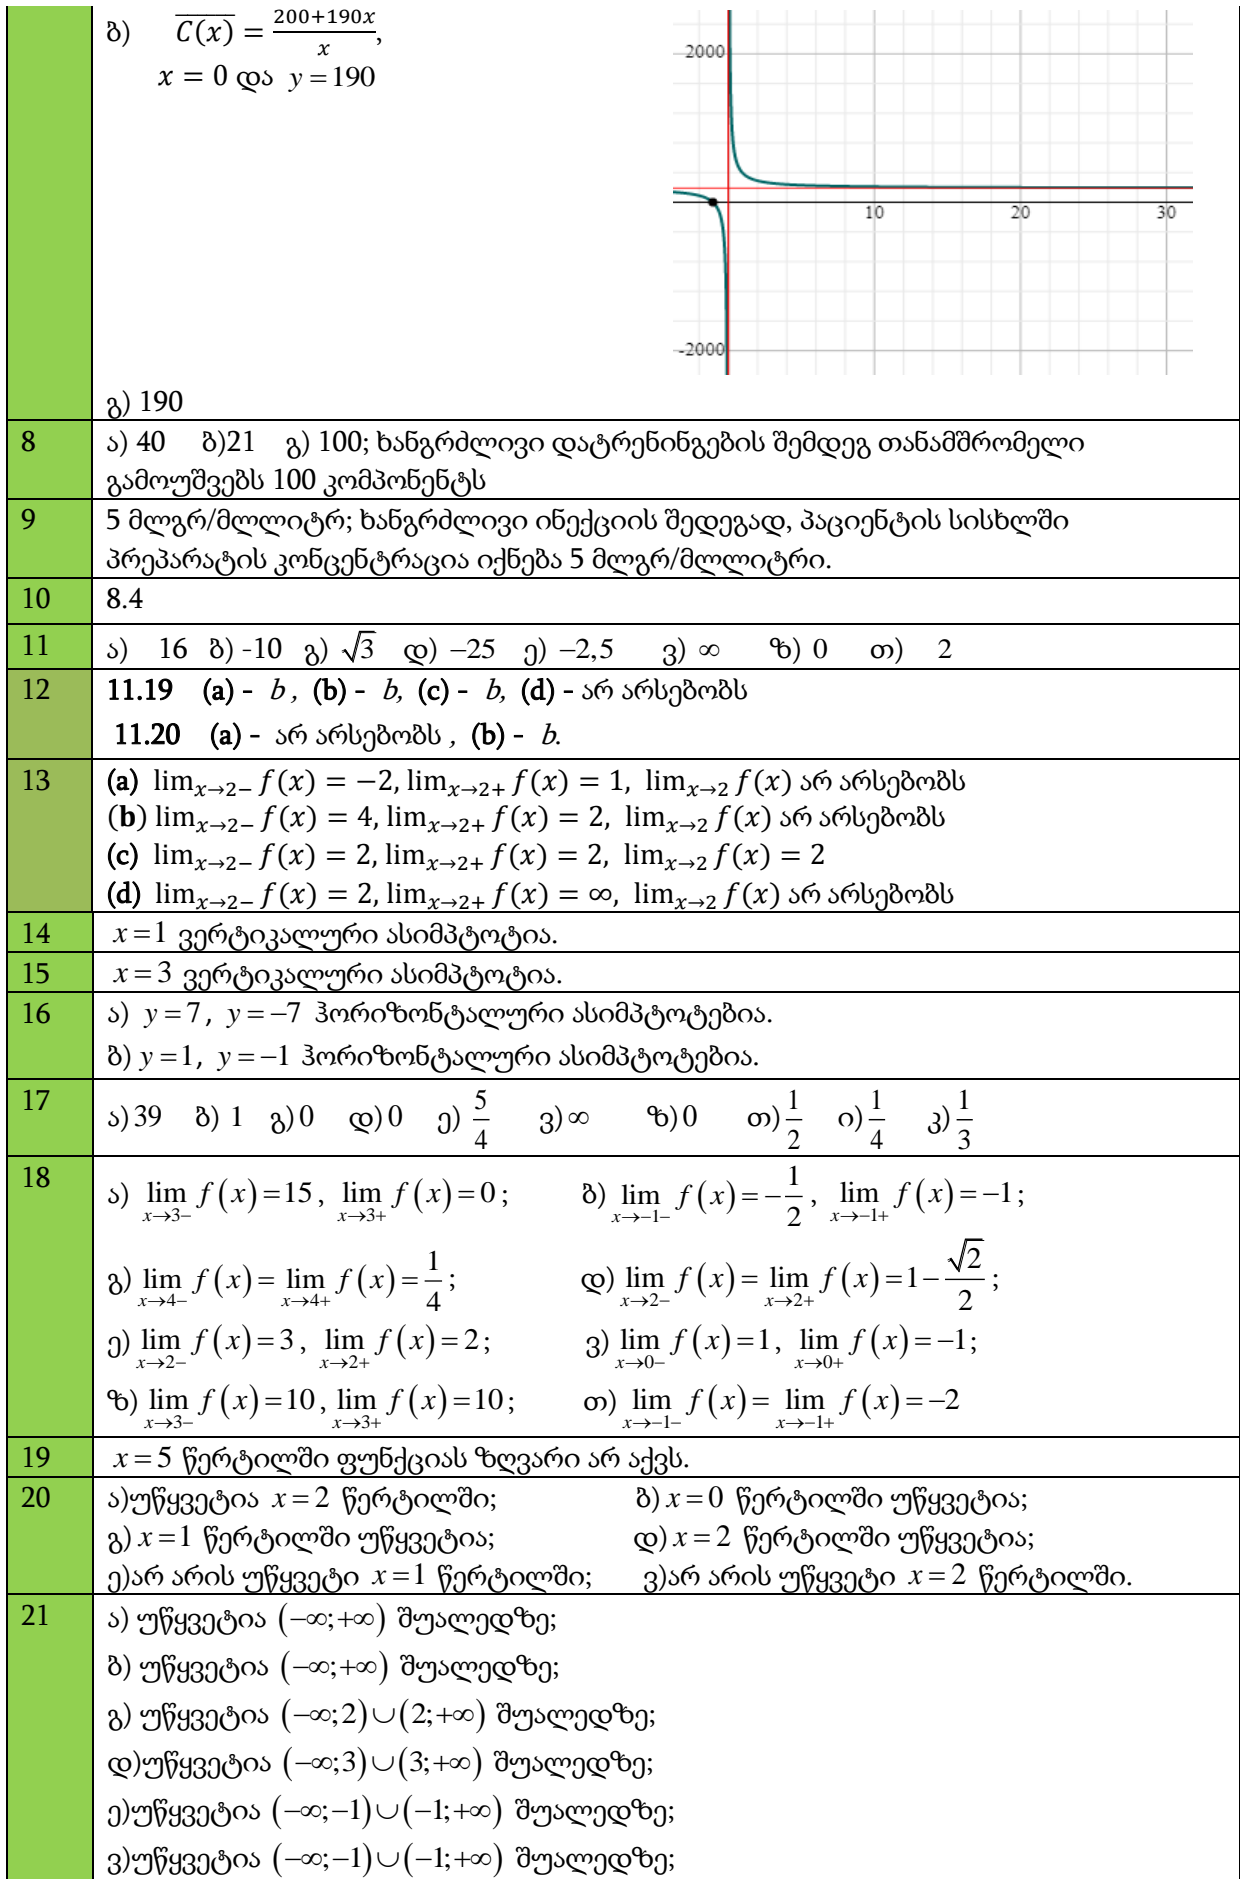 ბ) $\overline{C(x)} = \frac{200+190x}{x}$,
$x = 0$ და $y = 190$
2000
10 20 30
-2000
გ) 190
8 ა) 40 ბ)21 გ) 100; ხანგრძლივი დატრენინგების შემდეგ თანამშრომელი
გამოუშვებს 100 კომპონენტს
9 5 მლგრ/მლლიტრ; ხანგრძლივი ინექციის შედეგად, პაციენტის სისხლში
პრეპარატის კონცენტრაცია იქნება 5 მლგრ/მლლიტრი.
10 8.4
11 ა) 16 ბ) -10 გ) $\sqrt{3}$ დ) −25 ე) −2,5 ვ) ∞ ზ) 0 თ) 2
12 11.19 (a) - b , (b) - b, (c) - b, (d) - არ არსებობს
11.20 (a) - არ არსებობს , (b) - b.
13 (a) $\lim_{x\to2-} f(x) = -2, \lim_{x\to2+} f(x) = 1, \lim_{x\to2} f(x)$ არ არსებობს
(b) $\lim_{x\to2-} f(x) = 4, \lim_{x\to2+} f(x) = 2, \lim_{x\to2} f(x)$ არ არსებობს
(c) $\lim_{x\to2-} f(x) = 2, \lim_{x\to2+} f(x) = 2, \lim_{x\to2} f(x) = 2$
(d) $\lim_{x\to2-} f(x) = 2, \lim_{x\to2+} f(x) = \infty, \lim_{x\to2} f(x)$ არ არსებობს
14 $x = 1$ ვერტიკალური ასიმპტოტია.
15 $x = 3$ ვერტიკალური ასიმპტოტია.
16 ა) $y = 7$, $y = -7$ ჰორიზონტალური ასიმპტოტებია.
ბ) $y = 1$, $y = -1$ ჰორიზონტალური ასიმპტოტებია.
17 ა) 39 ბ) 1 გ) 0 დ) 0 ე) $\frac{5}{4}$ ვ) ∞ ზ) 0 თ) $\frac{1}{2}$ ი) $\frac{1}{4}$ კ) $\frac{1}{3}$
18 ა) $\lim_{x\to3-} f(x) = 15$, $\lim_{x\to3+} f(x) = 0$; ბ) $\lim_{x\to-1-} f(x) = -\frac{1}{2}$, $\lim_{x\to-1+} f(x) = -1$;
გ) $\lim_{x\to4-} f(x) = \lim_{x\to4+} f(x) = \frac{1}{4}$; დ) $\lim_{x\to2-} f(x) = \lim_{x\to2+} f(x) = 1 - \frac{\sqrt{2}}{2}$;
ე) $\lim_{x\to2-} f(x) = 3$, $\lim_{x\to2+} f(x) = 2$; ვ) $\lim_{x\to0-} f(x) = 1$, $\lim_{x\to0+} f(x) = -1$;
ზ) $\lim_{x\to3-} f(x) = 10$, $\lim_{x\to3+} f(x) = 10$; თ) $\lim_{x\to-1-} f(x) = \lim_{x\to-1+} f(x) = -2$
19 $x = 5$ წერტილში ფუნქციას ზღვარი არ აქვს.
20 ა)უწყვეტია $x = 2$ წერტილში; ბ) $x = 0$ წერტილში უწყვეტია;
გ) $x = 1$ წერტილში უწყვეტია; დ) $x = 2$ წერტილში უწყვეტია;
ე)არ არის უწყვეტი $x = 1$ წერტილში; ვ)არ არის უწყვეტი $x = 2$ წერტილში.
21 ა) უწყვეტია (−∞;+∞) შუალედზე;
ბ) უწყვეტია (−∞;+∞) შუალედზე;
გ) უწყვეტია (−∞;2)∪(2;+∞) შუალედზე;
დ)უწყვეტია (−∞;3)∪(3;+∞) შუალედზე;
ე)უწყვეტია (−∞;−1)∪(−1;+∞) შუალედზე;
ვ)უწყვეტია (−∞;−1)∪(−1;+∞) შუალედზე;